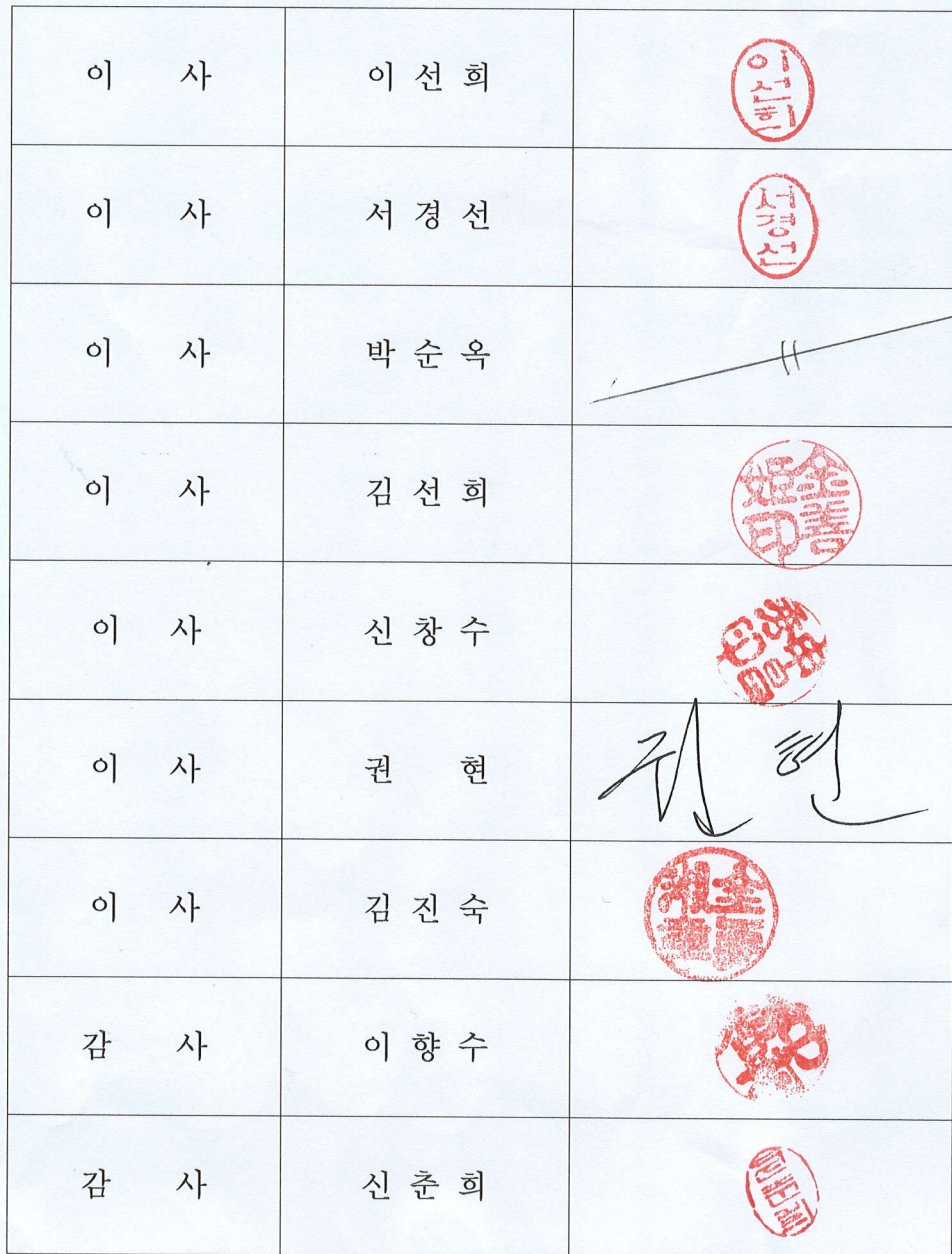 이 사 이 선 희 이선희
이 사 서 경 선 서경선
이 사 박 순 옥
이 사 김 선 희 金善姬印
이 사 신 창 수
이 사 권 현 권현
이 사 김 진 숙
감 사 이 향 수
감 사 신 춘 희